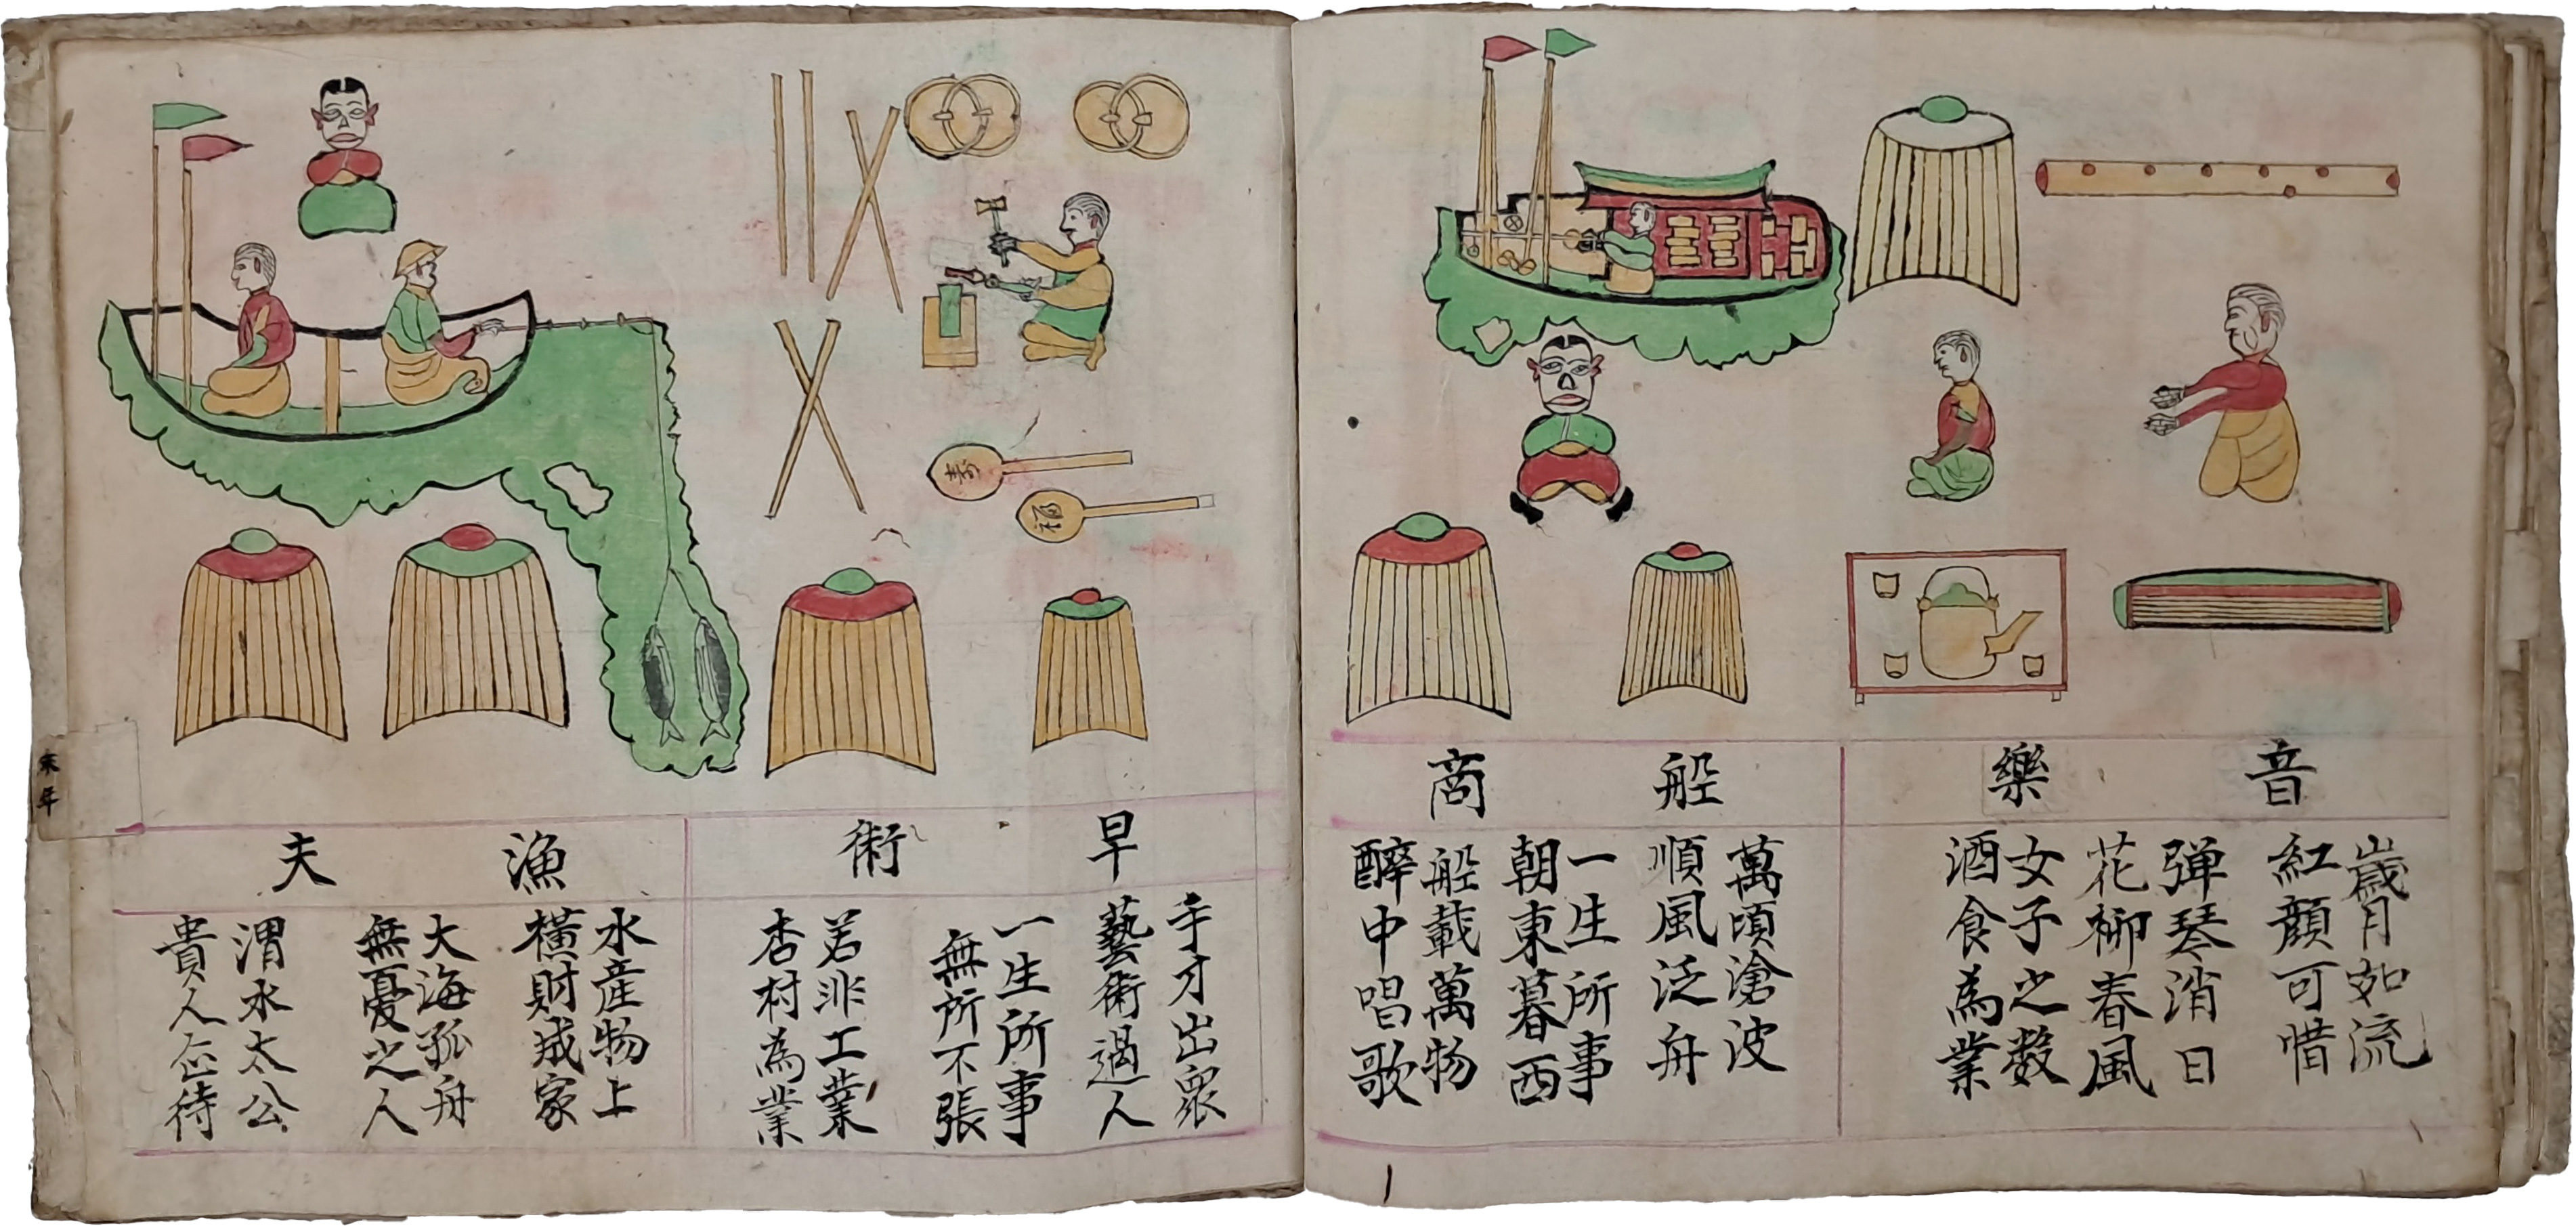 音樂
歲月如流
紅顔可惜
弾琴消日
花柳春風
女子之数
酒食為業
船商
萬頃滄波
順風泛舟
一生所事
朝東暮西
船載萬物
醉中唱歌
早術
手才出衆
藝術過人
一生所事
無所不張
若非工業
杏村為業
漁夫
水産物上
橫財成家
大海孤舟
無憂之人
渭水太公
貴人苽待
壽
福
未年